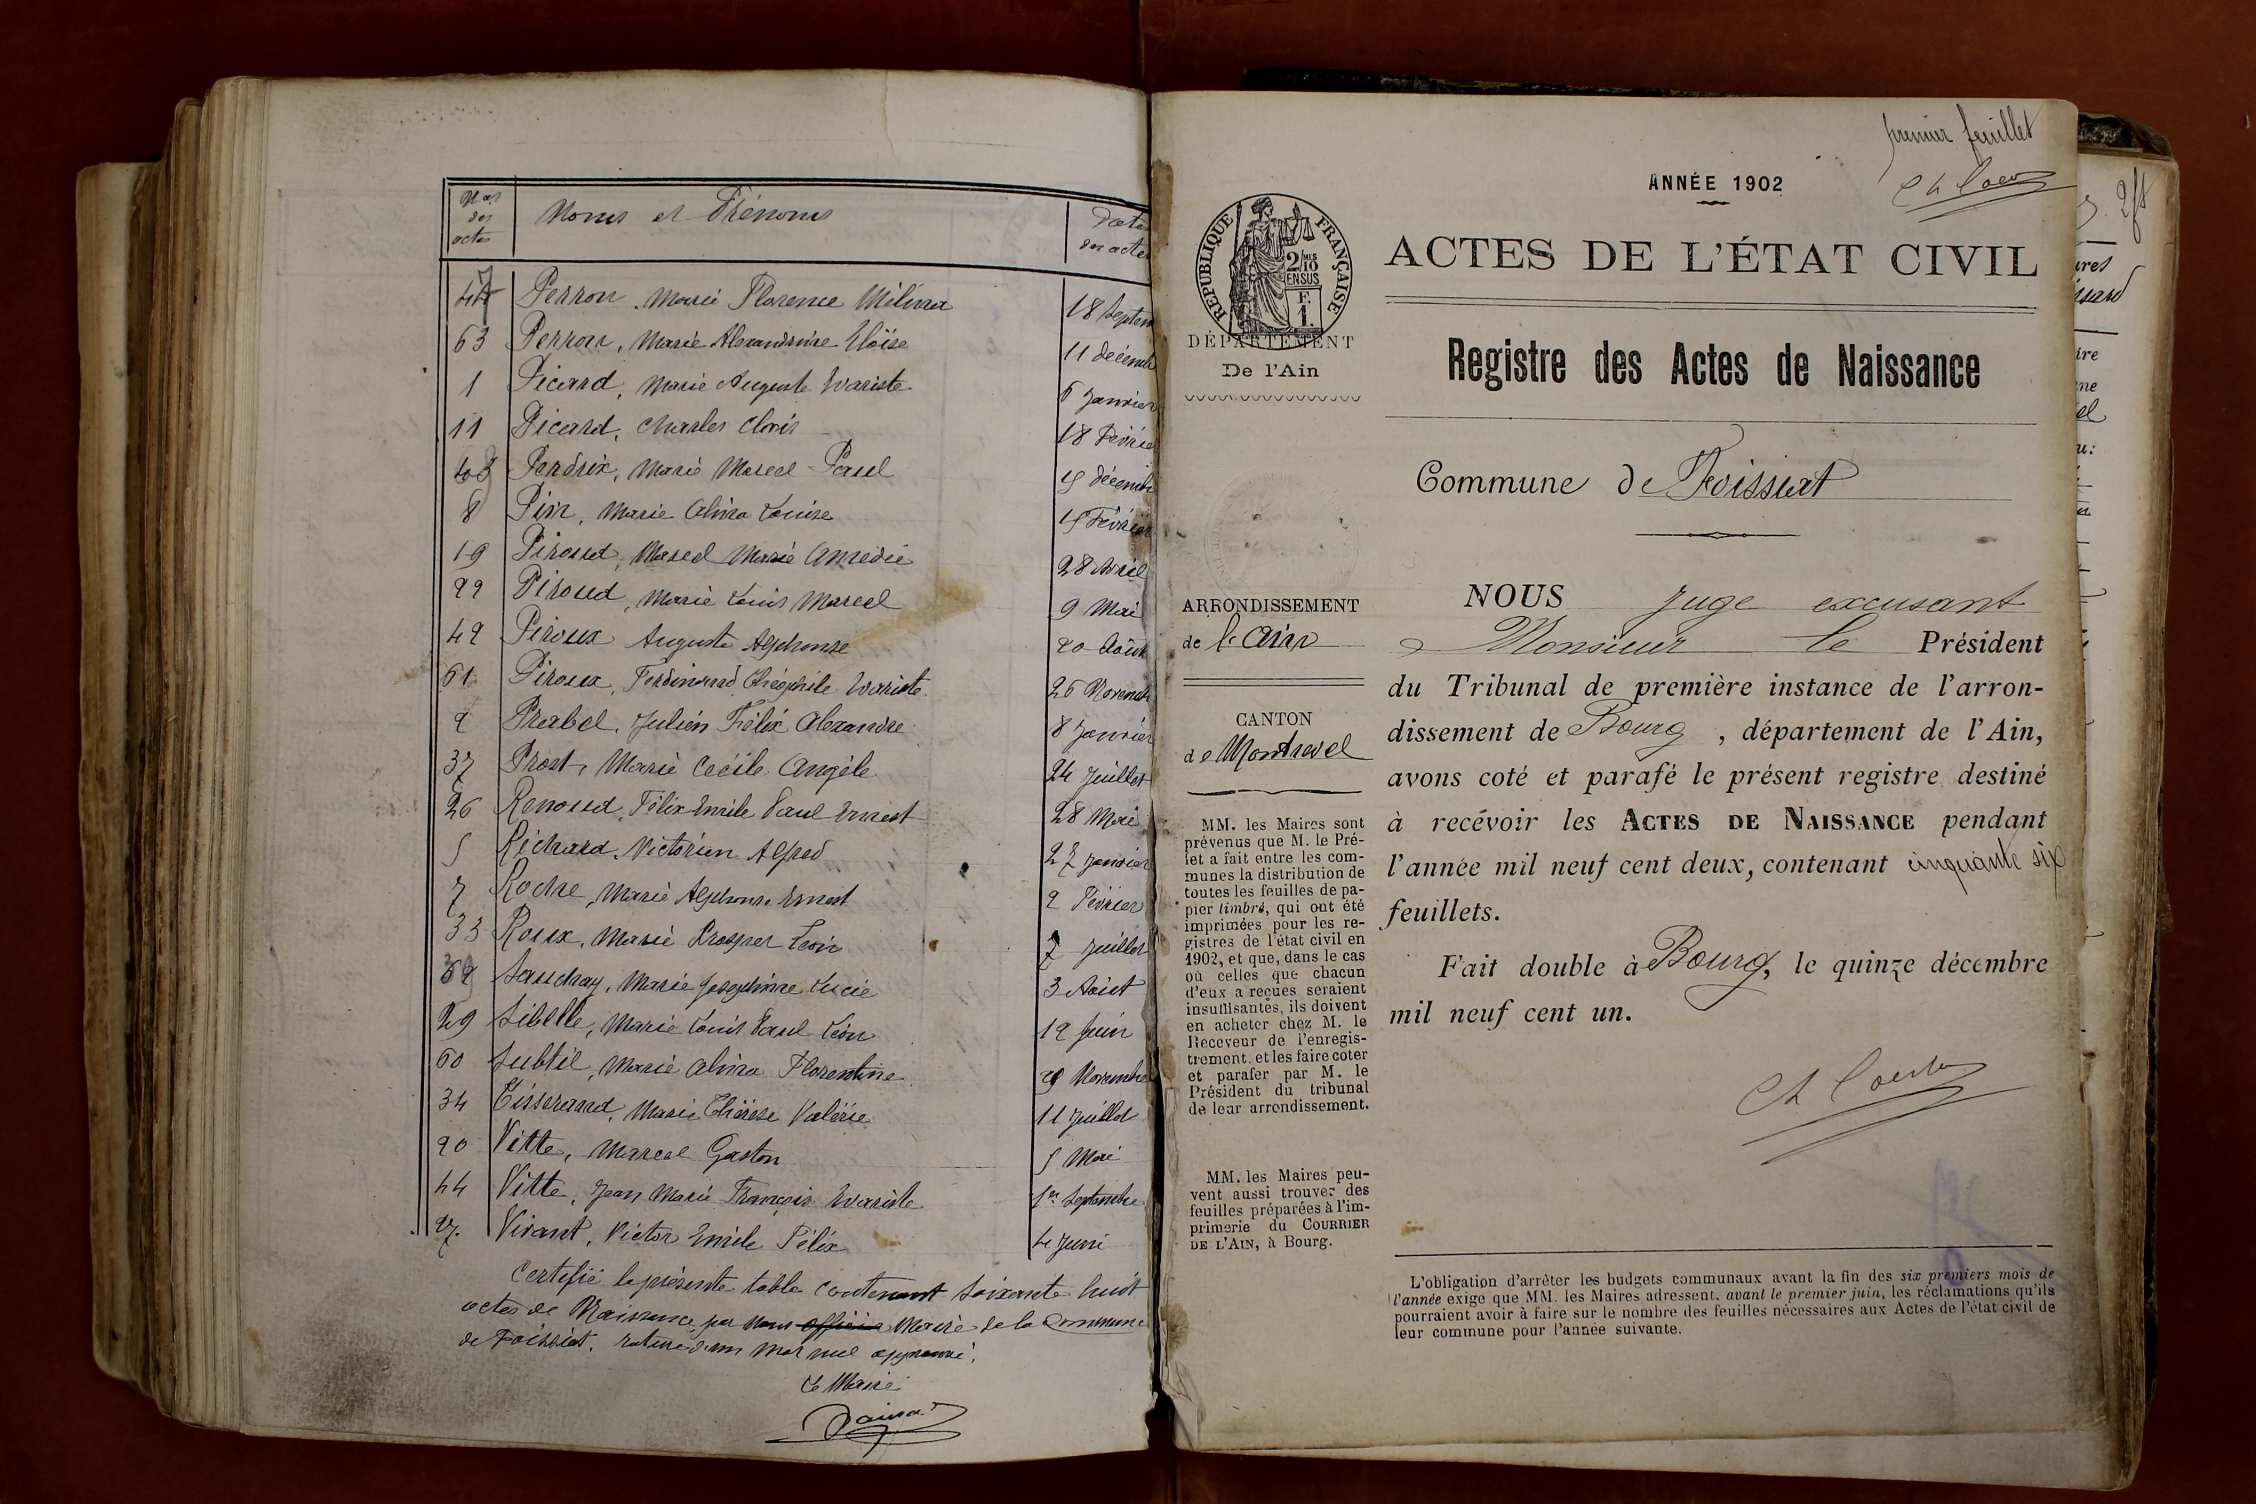 Nos des actes
Noms et Prénoms
Date des actes
47 Perron, Marie Florence Mélina 18 Septem
63 Perron, Marie Alexandrine Eloïse 11 décemb
1 Picard, Marie Auguste Evariste 6 Janvier
11 Picard, Charles Clovis 18 Février
Perdrix, Marie Marcel Paul 15 décemb
8 Pin, Marie Alina Louise 15 Février
19 Piroud, Marcel Marie Amédée 28 Avril
22 Piroud, Marie Louis Marcel 9 Mai
42 Piroux Auguste Alphonse 20 Août
61 Piroux, Ferdinand Théophile Evariste 26 Novemb
2 Prabel, Julien Félix Alexandre 8 Janvier
37 Prost, Marie Cécile Angèle 24 Juillet
26 Renoud, Félix Emile Paul Ernest 28 Mai
5 Richard, Victorien Alfred 27 Janvier
7 Roche, Marie Alphonse Ernest 2 Février
33 Roux, Marie Prosper Léon 7 Juillet
39 Sauchay, Marie Joséphine Lucie 3 Août
29 Sibelle, Marie Louis Paul Léon 12 Juin
60 Subtil, Marie Alina Florentine 29 Novembre
34 Tisserand, Marie Thérèse Valérie 11 Juillet
20 Vitte, Marcel Gaston 5 Mai
44 Vitte, Jean Marie François Evariste 1er Septembre
27. Vivant, Victor Emile Félix 4 Juin
Certifié la présente table contenant soixante huit
actes de Naissance par nous officier Maire de la Commune
de Foissiat. rature d'un mot nul approuvé.
Le Maire
premier feuillet
ANNÉE 1902
ACTES DE L'ÉTAT CIVIL
RÉPUBLIQUE FRANÇAISE
2/10 MES EN SUS
F. 1.
DÉPARTEMENT
De l'Ain
Registre des Actes de Naissance
Commune de Foissiat
ARRONDISSEMENT
de l'Ain
CANTON
de Montrevel
MM. les Maires sont
prévenus que M. le Pré-
fet a fait entre les com-
munes la distribution de
toutes les feuilles de pa-
pier timbré, qui ont été
imprimées pour les re-
gistres de l'état civil en
1902, et que, dans le cas
où celles que chacun
d'eux a reçues seraient
insuffisantes, ils doivent
en acheter chez M. le
Receveur de l'enregis-
trement, et les faire coter
et parafer par M. le
Président du tribunal
de leur arrondissement.
MM. les Maires peu-
vent aussi trouver des
feuilles préparées à l'im-
primerie du COURRIER
DE L'AIN, à Bourg.
NOUS Juge excusant
Monsieur le Président
du Tribunal de première instance de l'arron-
dissement de Bourg, département de l'Ain,
avons coté et parafé le présent registre destiné
à recevoir les ACTES DE NAISSANCE pendant
l'année mil neuf cent deux, contenant cinquante six
feuillets.
Fait double à Bourg, le quinze décembre
mil neuf cent un.
L'obligation d'arrêter les budgets communaux avant la fin des six premiers mois de
l'année exige que MM. les Maires adressent, avant le premier juin, les réclamations qu'ils
pourraient avoir à faire sur le nombre des feuilles nécessaires aux Actes de l'état civil de
leur commune pour l'année suivante.